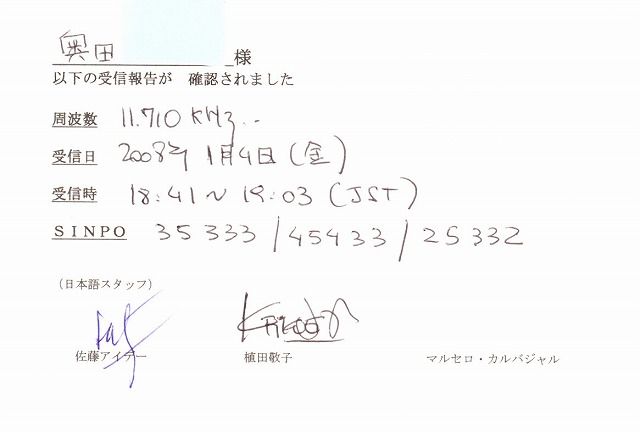 奥田 様
以下の受信報告が 確認されました
周波数 11.710 KHz.-
受信日 2008年 1月4日(金)
受信時 18:41～19:03 (JST)
SINPO 35333/45433/25332
(日本語スタッフ)
佐藤アイデー 植田敬子 マルセロ・カルバジャル